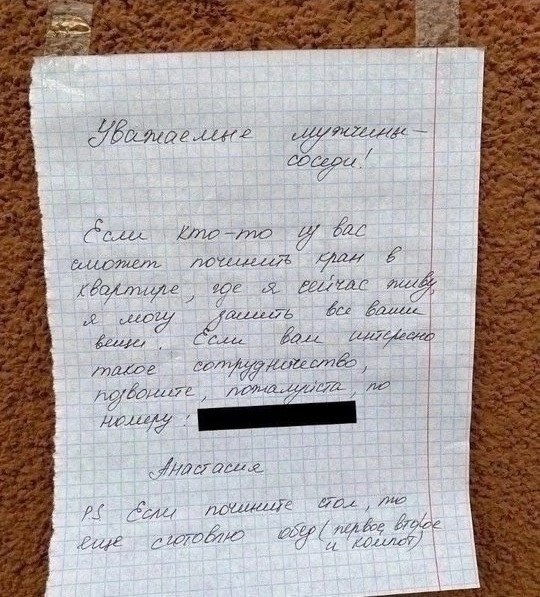 Уважаемые мужчины-
соседи!
Если кто-то из вас
сможет починить кран в
квартире, где я сейчас живу,
я могу зашить все ваши
вещи. Если вам интересно
такое сотрудничество,
позвоните, пожалуйста, по
номеру:
Анастасия
PS Если почините стол, то
еще сготовлю обед (первое, второе
и компот)